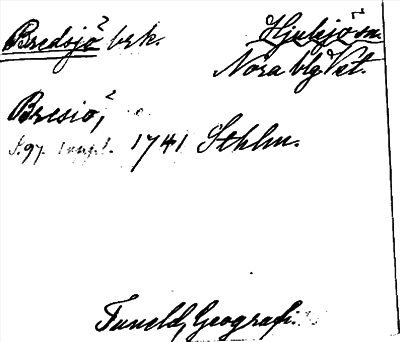 Bredsjö brk. Hjulsjö sn.
Nora blg Vstl.
Bresiö,
s. 97. 1741 Sthlm.
Tuneld, Geografi.